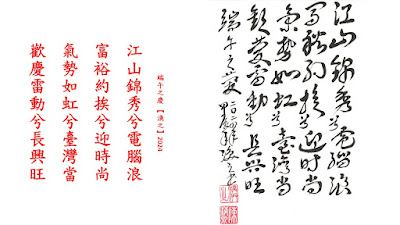 端午之慶 【漁之】2024
江山錦秀兮電腦浪
富裕約挨兮迎時尚
氣勢如虹兮臺灣當
歡慶雷動兮長興旺
江山錦秀兮電腦浪
富裕約挨兮迎時尚
氣勢如虹兮臺灣當
歡慶雷動兮長興旺
端午之慶